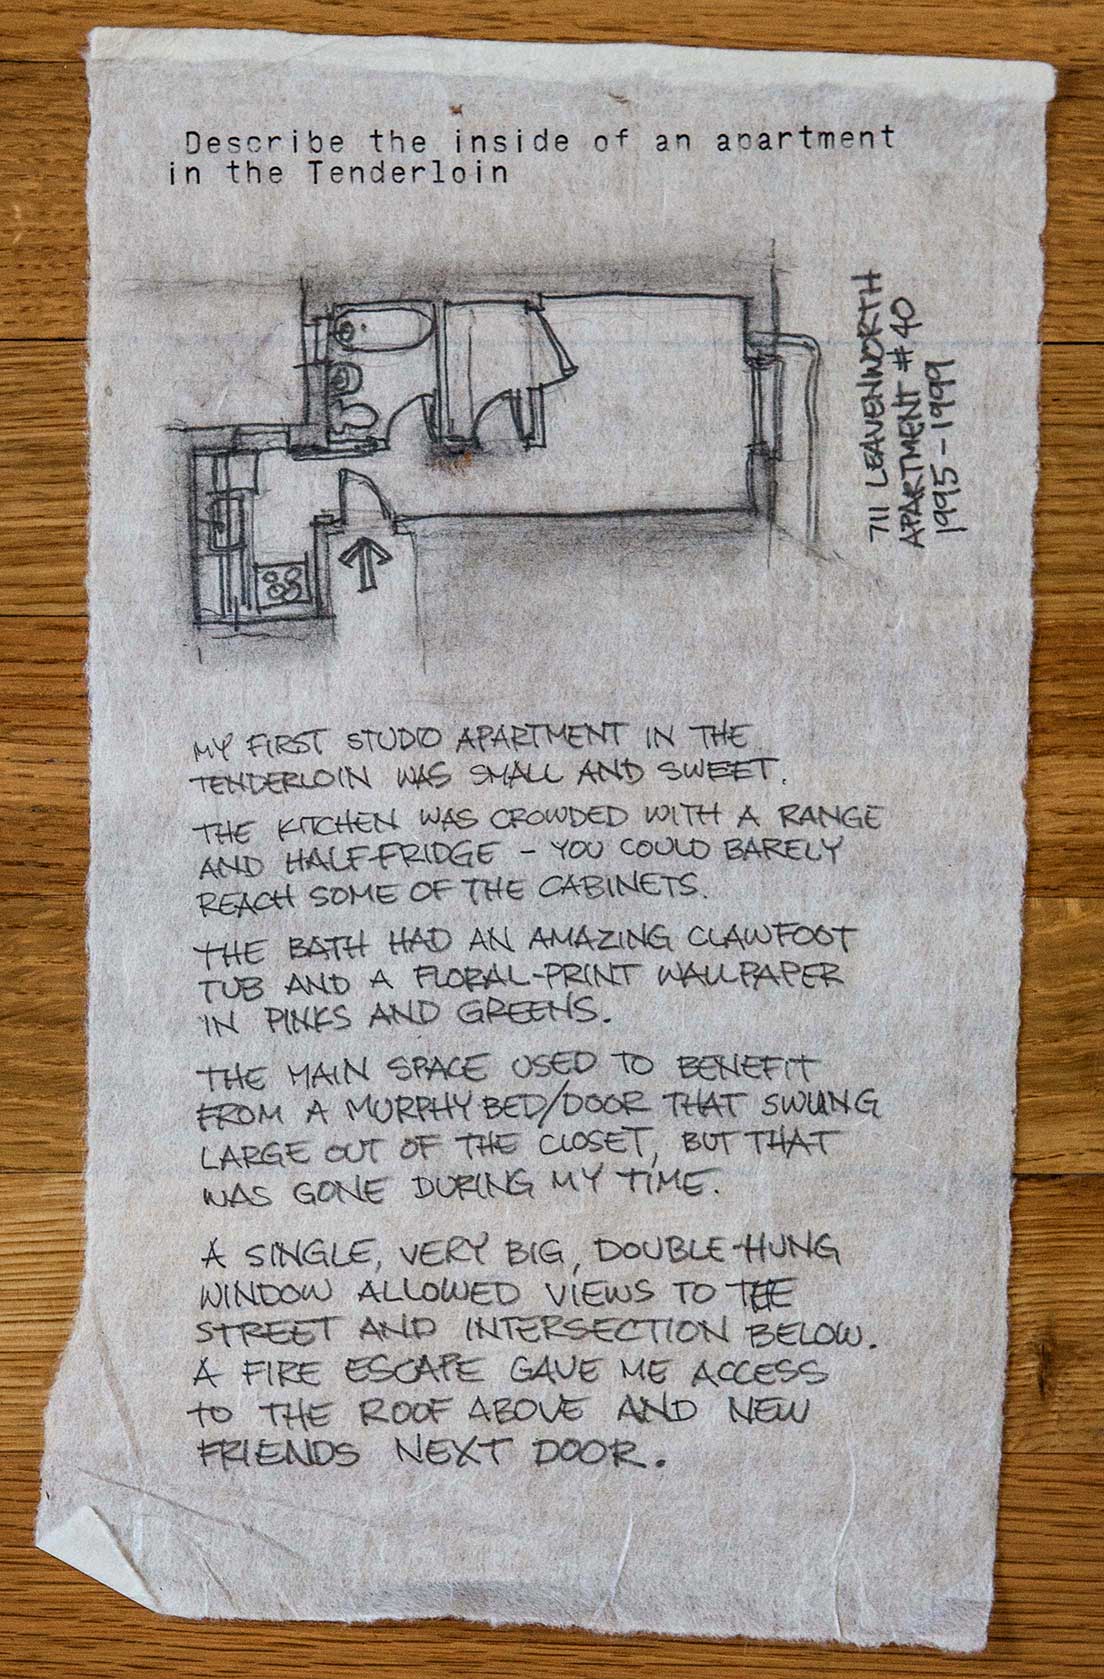 Describe the inside of an apartment
in the Tenderloin
711 LEAVENWORTH
APARTMENT #40
1995-1999
MY FIRST STUDIO APARTMENT IN THE
TENDERLOIN WAS SMALL AND SWEET.
THE KITCHEN WAS CROWDED WITH A RANGE
AND HALF-FRIDGE - YOU COULD BARELY
REACH SOME OF THE CABINETS.
THE BATH HAD AN AMAZING CLAWFOOT
TUB AND A FLORAL-PRINT WALLPAPER
IN PINKS AND GREENS.
THE MAIN SPACE USED TO BENEFIT
FROM A MURPHY BED/DOOR THAT SWUNG
LARGE OUT OF THE CLOSET, BUT THAT
WAS GONE DURING MY TIME.
A SINGLE, VERY BIG, DOUBLE-HUNG
WINDOW ALLOWED VIEWS TO THE
STREET AND INTERSECTION BELOW.
A FIRE ESCAPE GAVE ME ACCESS
TO THE ROOF ABOVE AND NEW
FRIENDS NEXT DOOR.